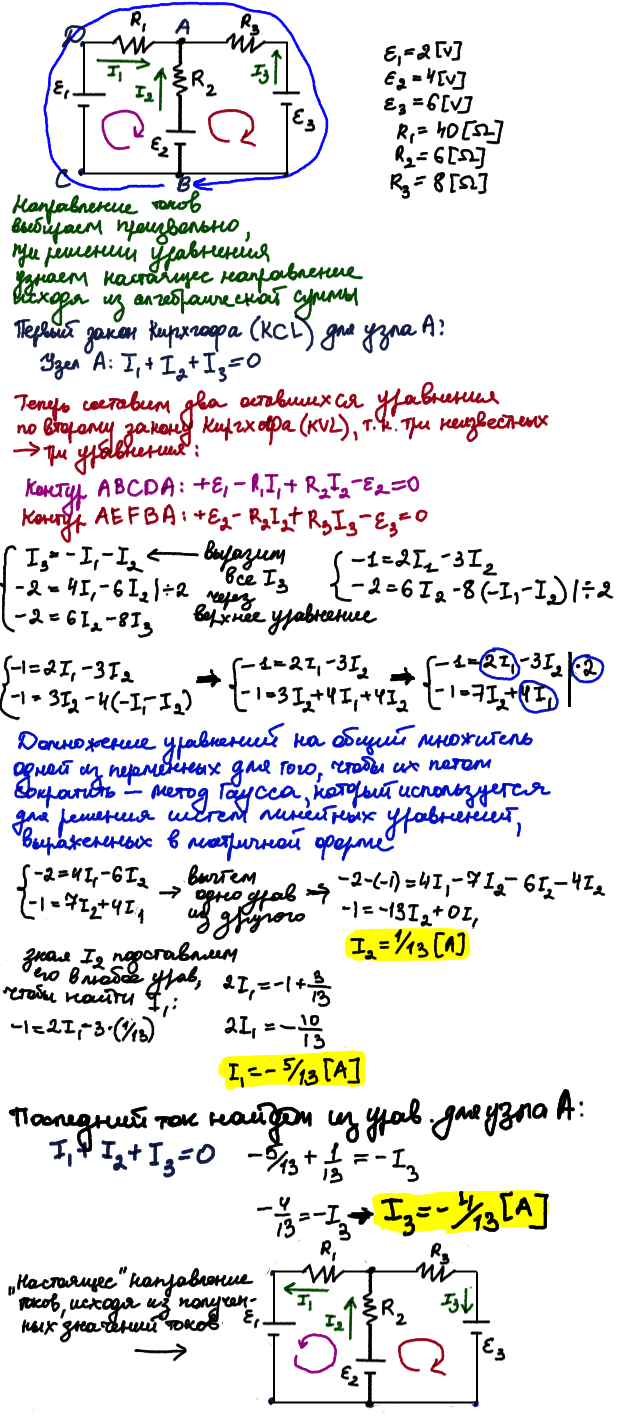 R₁ A R₃
D
I₁ I₂ R₂ I₃
ε₁ ε₂ ε₃
C B
ε₁=2[V]
ε₂=4[V]
ε₃=6[V]
R₁=40[Ω]
R₂=6[Ω]
R₃=8[Ω]
Направление токов
выбираем произвольно,
при решении уравнения
узнаем настоящее направление
исходя из алгебраической суммы
Первый закон Кирхгофа (KCL) для узла A:
Узел A: I₁+I₂+I₃=0
Теперь составим два оставшихся уравнения
по второму закону Киргхофа (KVL), т.к. три неизвестных
→ три уравнения:
Контур ABCDA: +ε₁-R₁I₁+R₂I₂-ε₂=0
Контур AEFBA: +ε₂-R₂I₂+R₃I₃-ε₃=0
I₃=-I₁-I₂ ← выразим
-2=4I₁-6I₂|÷2 все I₃
через
-2=6I₂-8I₃ верхнее уравнение
-1=2I₁-3I₂
-2=6I₂-8(-I₁-I₂)|÷2
-1=2I₁-3I₂
-1=3I₂-4(-I₁-I₂)
→ -1=2I₁-3I₂
-1=3I₂+4I₁+4I₂
→ -1=2I₁-3I₂|·2
-1=7I₂+4I₁
Домножение уравнений на общий множитель
одной из перменных для того, чтобы их потом
сократить — метод Гаусса, который используется
для решения систем линейных уравнений,
выраженных в матричной форме
-2=4I₁-6I₂
-1=7I₂+4I₁
→ вычтем
одно урав
из другого
→ -2-(-1)=4I₁-7I₂-6I₂-4I₂
-1=-13I₂+0I₁
I₂=1/13[A]
зная I₂ подставляем
его в любое урав,
чтобы найти I₁:
-1=2I₁-3·(1/13)
2I₁=-1+3/13
2I₁=-10/13
I₁=-5/13[A]
Последний ток найдем из урав. для узла A:
I₁+I₂+I₃=0 -5/13+1/13=-I₃
-4/13=-I₃→ I₃=-4/13[A]
„Настоящее" направление
токов, исходя из получен-
ных значений токов
→
R₁ R₃
I₁ I₂ R₂ I₃
ε₁ ε₂ ε₃